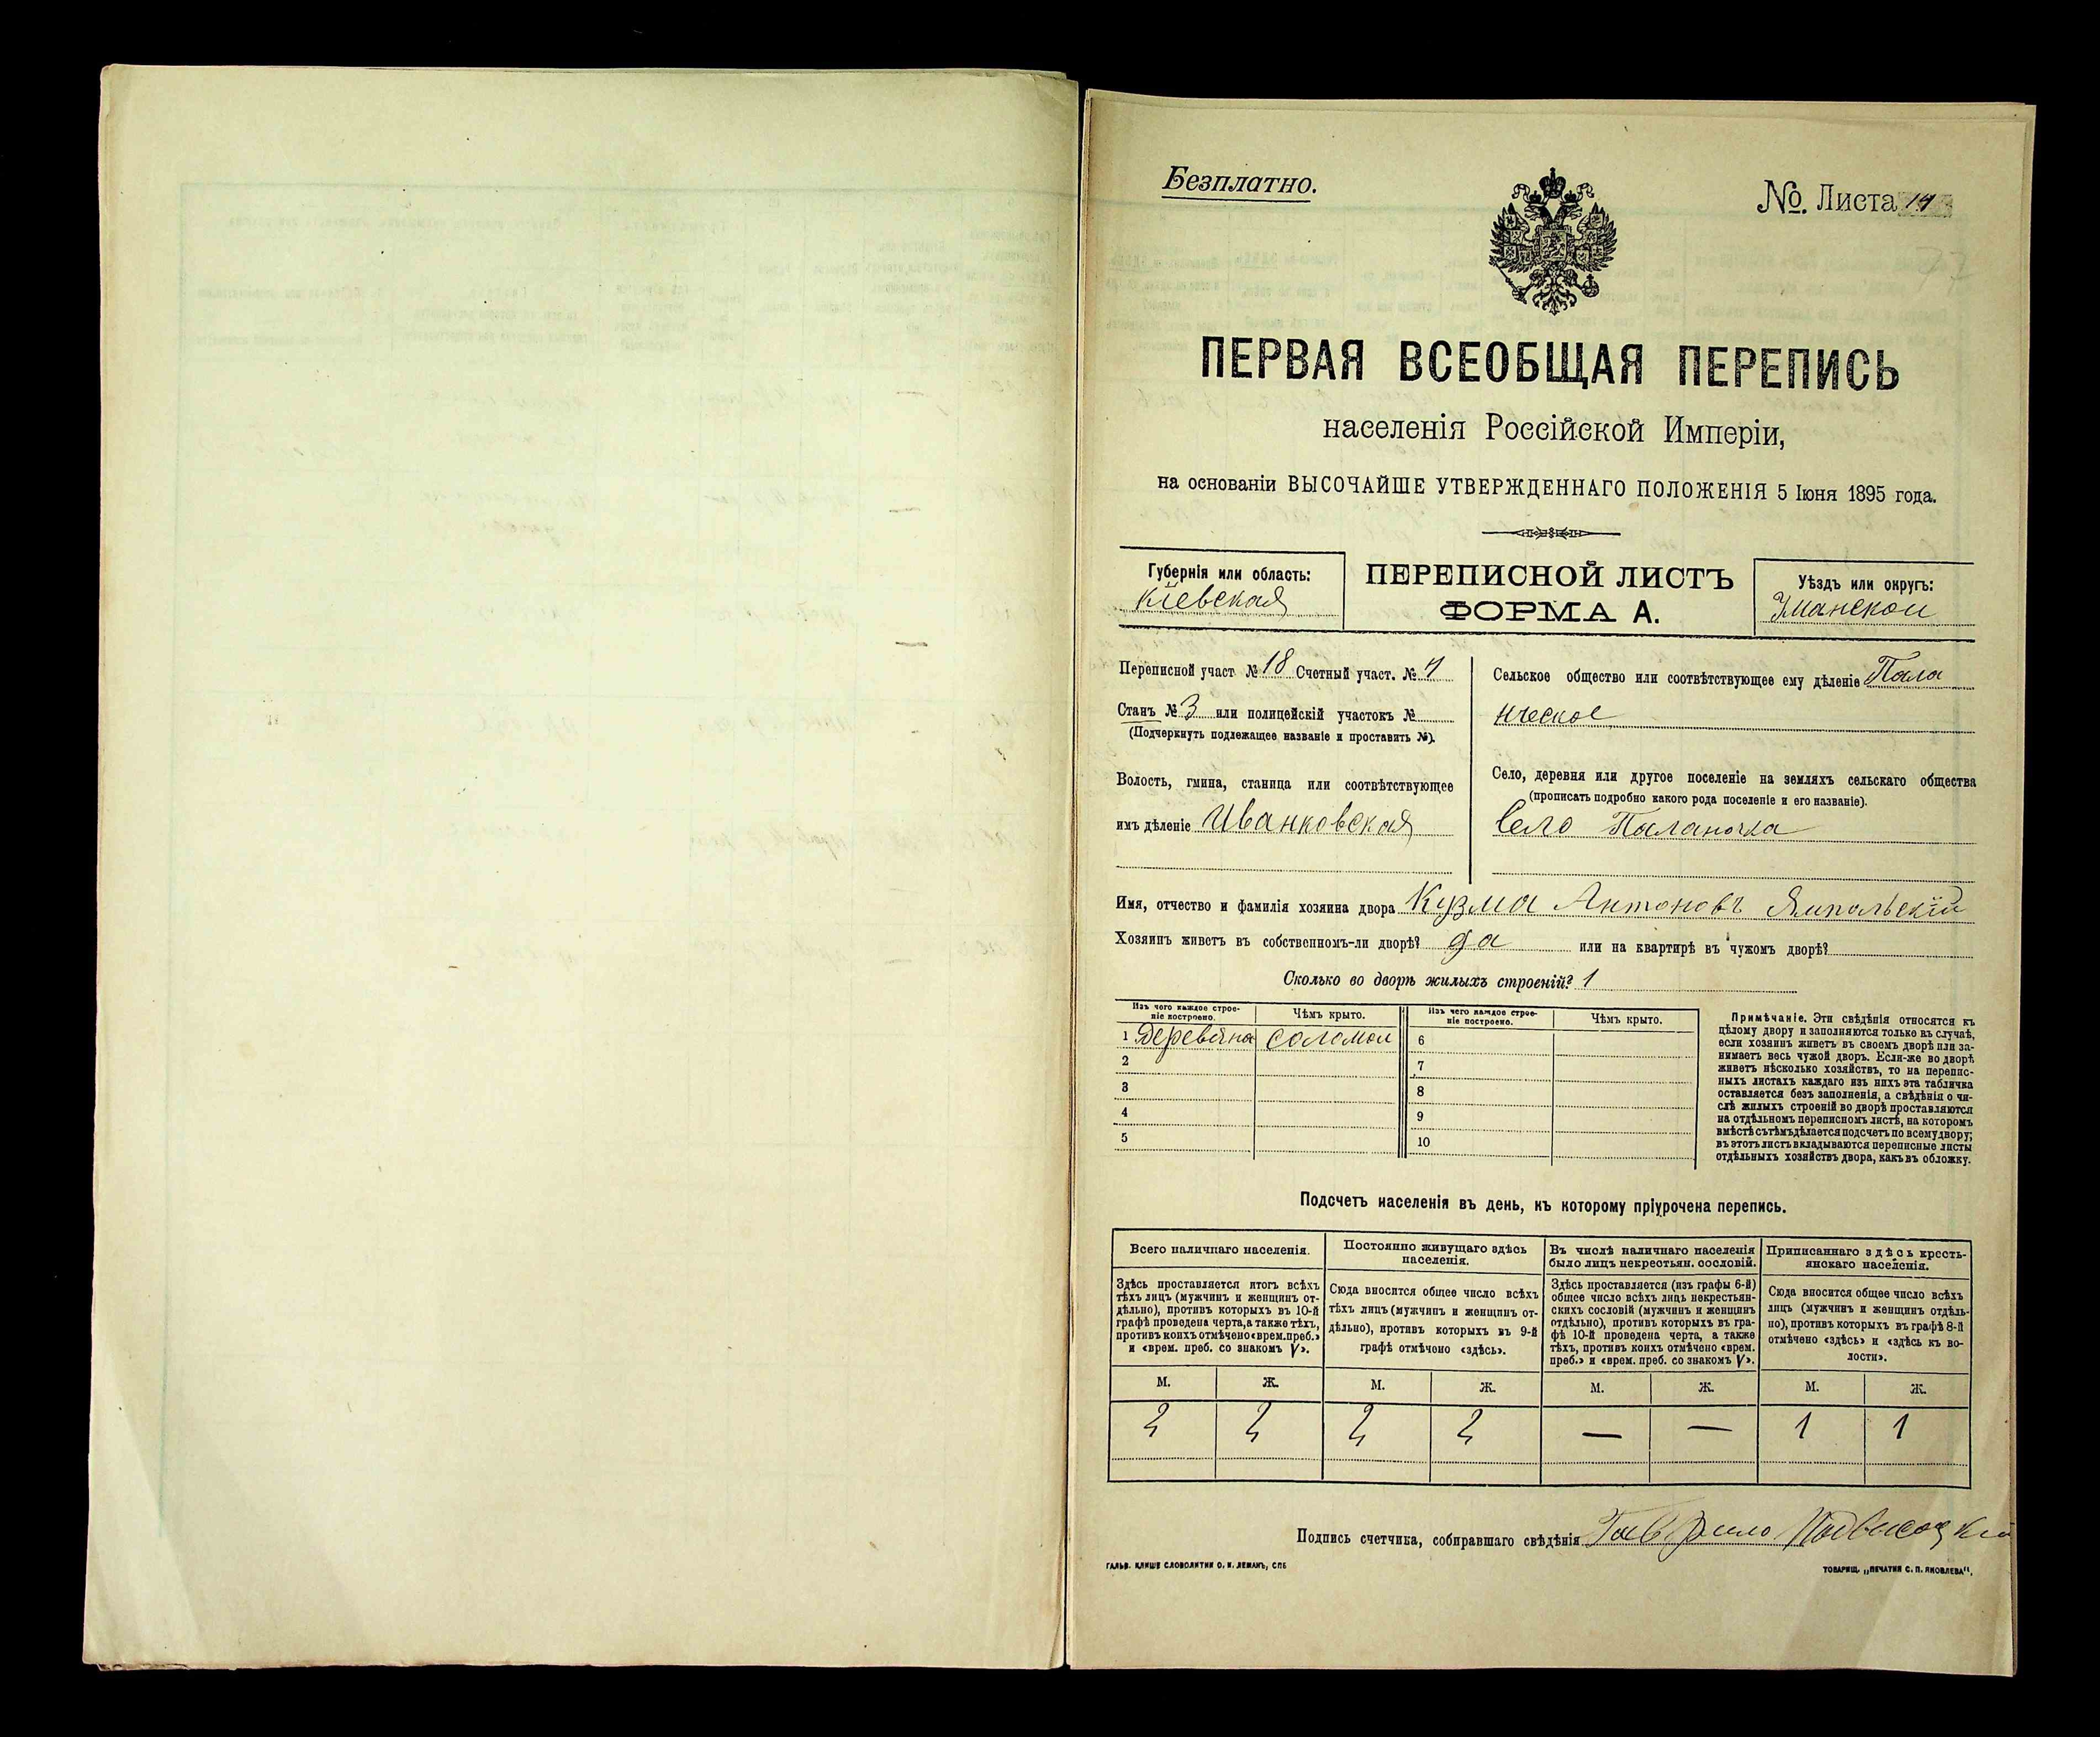 Безплатно.
№. Листа 14
ПЕРВАЯ ВСЕОБЩАЯ ПЕРЕПИСЬ
населенія Россійской Имперіи,
на основаніи ВЫСОЧАЙШЕ УТВЕРЖДЕННАГО ПОЛОЖЕНІЯ 5 Іюня 1895 года.
Губернія или область:
Кіевская
ПЕРЕПИСНОЙ ЛИСТЪ
ФОРМА А.
Уѣздъ или округъ:
Уманской
Переписной участ № 18 Счетный участ. №
Станъ № 3 или полицейскій участокъ №
(Подчеркнуть подлежащее названіе и проставить №).
Волость, гмина, станица или соотвѣтствующее
имъ дѣленіе Иванковская
Сельское общество или соотвѣтствующее ему дѣленіе Пала
нческое
Село, деревня или другое поселеніе на земляхъ сельскаго общества
(прописать подробно какого рода поселеніе и его названіе).
Село Паланочка
Имя, отчество и фамилія хозяина двора Кузма Антоновъ Ямпольскій
Хозяинъ живетъ въ собственномъ-ли дворѣ? да или на квартирѣ въ чужомъ дворѣ?
Сколько во дворѣ жилыхъ строеній? 1
Изъ чего каждое строе-
ніе построено.
Чѣмъ крыто.
Изъ чего каждое строе-
ніе построено.
Чѣмъ крыто.
1 Деревяна соломой 6
2 7
3 8
4 9
5 10
Примѣчаніе. Эти свѣдѣнія относятся къ
цѣлому двору и заполняются только въ случаѣ,
если хозяинъ живетъ въ своемъ дворѣ или за-
нимаетъ весь чужой дворъ. Если-же во дворѣ
живетъ нѣсколько хозяйствъ, то на переписс-
ныхъ листахъ каждаго изъ нихъ эта табличка
оставляется безъ заполненія, а свѣдѣнія о чи-
слѣ жилыхъ строеній во дворѣ проставляются
на отдѣльномъ переписномъ листѣ, на которомъ
вмѣстѣ съ тѣмъ дѣлается подсчетъ по всему двору;
въ этотъ листъ вкладываются переписные листы
отдѣльныхъ хозяйствъ двора, какъ въ обложку.
Подсчетъ населенія въ день, къ которому пріурочена перепись.
Всего наличнаго населенія.
Постоянно живущаго здѣсь
населенія.
Въ числѣ наличнаго населенія
было лицъ некрестьян. сословій.
Приписаннаго здѣсь кресть-
янскаго населенія.
Здѣсь проставляется итогъ всѣхъ
тѣхъ лицъ (мужчинъ и женщинъ от-
дѣльно), противъ которыхъ въ 10-й
графѣ проведена черта, а также тѣхъ,
противъ коихъ отмѣчено «врем. преб.»
и «врем. преб. со знакомъ V».
Сюда вносится общее число всѣхъ
тѣхъ лицъ (мужчинъ и женщинъ от-
дѣльно), противъ которыхъ въ 9-й
графѣ отмѣчено «здѣсь».
Здѣсь проставляется (изъ графы 6-й)
общее число всѣхъ лицъ некрестьян-
скихъ сословій (мужчинъ и женщинъ
отдѣльно), противъ которыхъ въ гра-
фѣ 10-й проведена черта, а также
тѣхъ, противъ коихъ отмѣчено «врем.
преб.» и «врем. преб. со знакомъ V».
Сюда вносится общее число всѣхъ
лицъ (мужчинъ и женщинъ отдѣль-
но), противъ которыхъ въ графѣ 8-й
отмѣчено «здѣсь» и «здѣсь къ во-
лости».
М. Ж. М. Ж. М. Ж. М. Ж.
2 2 2 2 — — 1 1
Подпись счетчика, собиравшаго свѣдѣнія Гаврило Подвисоцкій
ГАЛЬВ. КЛИШЕ СЛОВОЛИТНИ О. И. ЛЕМАНЪ, СПБ
ТОВАРИЩ. „ПЕЧАТНЯ С. П. ЯКОВЛЕВА“.